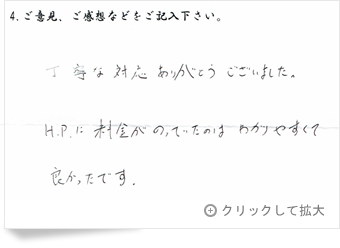 4.ご意見、ご感想などをご記入下さい。
丁寧な対応ありがとうございました。
H.P.に料金がのっていたのはわかりやすくて
良かったです.
クリックして拡大